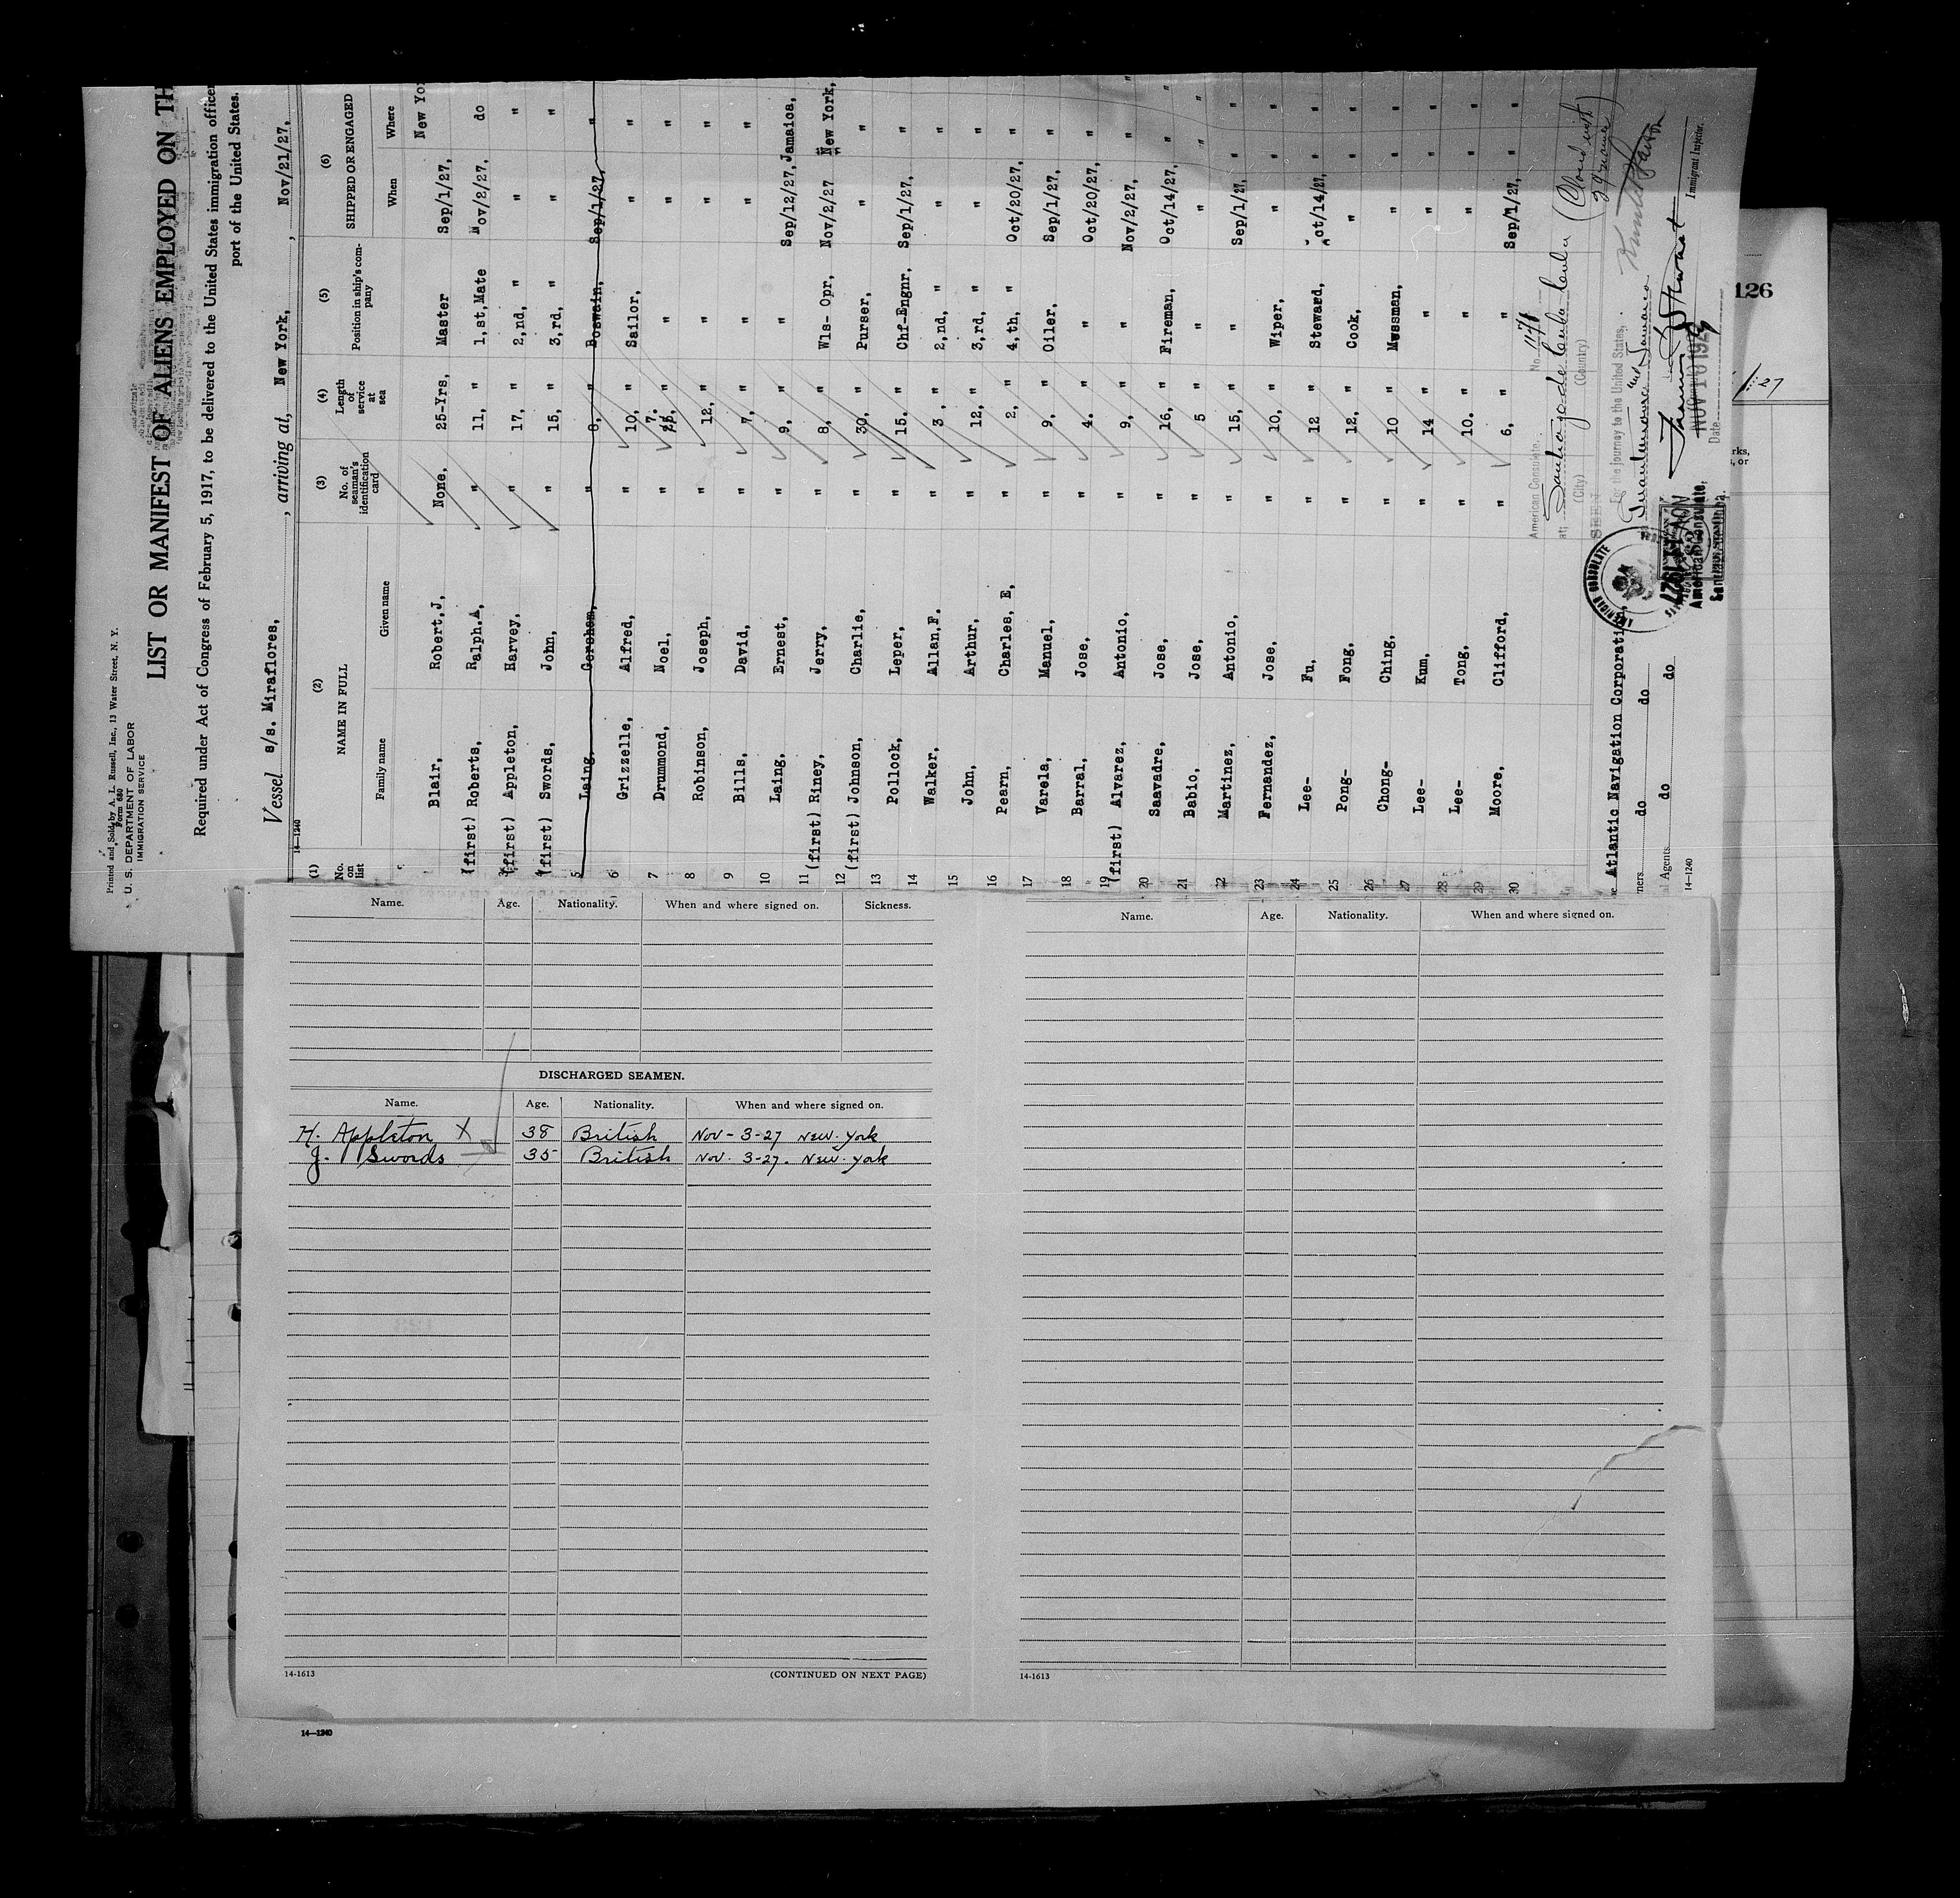 Printed and Sold by A. L. Russell, Inc., 13 Water Street, N. Y.
Form 680
U. S. DEPARTMENT OF LABOR
IMMIGRATION SERVICE
LIST OR MANIFEST OF ALIENS EMPLOYED ON TH
Required under Act of Congress of February 5, 1917, to be delivered to the United States immigration officer
port of the United States.
Vessel s/s. Miraflores, , arriving at, New York, , Nov/21/27,
14—1240
(1) (2) (3) (4) (5) (6)
No. on list NAME IN FULL No. of seaman's identification card Length of service at sea Position in ship's company SHIPPED OR ENGAGED
Family name Given name When Where
Blair, Robert,J, None, 25-Yrs, Master Sep/1/27, New Yo
(first) Roberts, Ralph.A, " 11, " 1,st,Mate Nov/2/27, do
(first) Appleton, Harvey, " 17, " 2,nd, " " "
(first) Swords, John, " 15, " 3,rd, " " "
5 Laing, Gershom, 8, " Boswain, Sep/1/27, "
6 Grizzelle, Alfred, " 10, " Sailor, " "
7 Drummond, Noel, " 7. " " " "
8 Robinson, Joseph, " 12, " " " "
9 Bills, David, " 7, " " " "
10 Laing, Ernest, " 9, " " Sep/12/27, Jamaica,
11 (first) Riney, Jerry, " 8, " Wls- Opr, Nov/2/27 New York,
12 (first) Johnson, Charlie, " 30, " Purser, " "
13 Pollock, Leper, " 15. " Chf-Engnr, Sep/1/27, "
14 Walker, Allan,F. " 3, " 2,nd, " " "
15 John, Arthur, " 12, " 3,rd, " " "
16 Pearn, Charles, E, " 2, " 4,th, " Oct/20/27, "
17 Varela, Manuel, " 9, " Oiler, Sep/1/27, "
18 Barral, Jose, " 4. " " Oct/20/27, "
19 (first) Alvarez, Antonio, " 9, " " Nov/2/27, "
20 Saavadre, Jose, " 16, " Fireman, Oct/14/27, "
21 Babio, Jose, " 5 " " " "
22 Martinez, Antonio, " 15, " " Sep/1/27, "
23 Fernandez, Jose, " 10, " Wiper, " "
24 Lee- Fu, " 12 " Steward, Oct/14/27, "
25 Pong- Fong, " 12, " Cook, " "
26 Chong- Ching, " 10 " Messman, " "
27 Lee- Kum, " 14 " " " "
28 Lee- Tong, " 10. " " " "
29 Moore, Clifford, " 6, " " Sep/1/27, "
30
American Consulate. No. 1171
at: Santiago de Cuba Cuba
(City) (Country)
SEEN
For the journey to the United States,
Guantanamo and Jamaica
AMERICAN CONSULATE
American Consulate,
Date
NOV 10 192
Immigrant Inspector.
Atlantic Navigation Corporati
ners do do
l Agents do do
14—1240
126
27
rks,
, or
Name. Age. Nationality. When and where signed on. Sickness.
DISCHARGED SEAMEN.
Name. Age. Nationality. When and where signed on.
H. Appleton X 38 British Nov - 3-27 New York
J. Swords 35 British Nov. 3-27. New York
14-1613 (CONTINUED ON NEXT PAGE)
Name. Age. Nationality. When and where signed on.
14-1613
14—1240